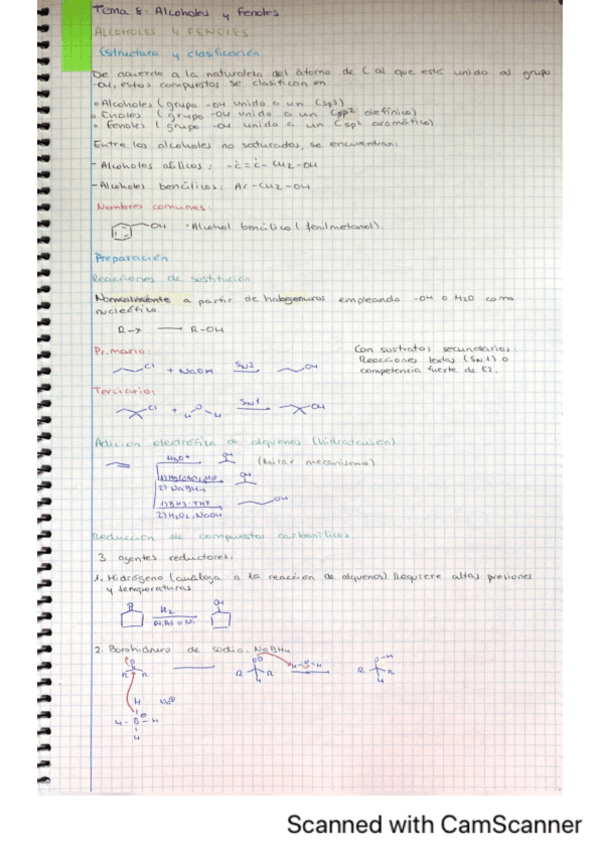 Tema 8: Alcoholes y fenoles
ALCOHOLES Y FENOLES
Estructura y clasificación
De acuerdo a la naturaleza del átomo de C al que esté unido el grupo
-OH, estos compuestos se clasifican en:
Alcoholes (grupo -OH unido a un Csp3)
Enoles (grupo -OH unido a un Csp2 olefínico)
Fenoles (grupo -OH unido a un Csp2 aromático)
Entre los alcoholes no saturados, se encuentran:
- Alcoholes alílicos: -C=C-CH2-OH
- Alcoholes bencílicos: Ar-CH2-OH
Nombres comunes:
OH · Alcohol bencílico (fenilmetanol).
Preparación
Reacciones de sustitución
Normalmente a partir de halogenuros empleando -OH o H2O como
nucleófilo
R-X → R-OH
Primario:
Cl + NaOH SN2 OH
Con sustratos secundarios:
Reacciones lentas (SN1) o
competencia fuerte de E2.
Terciario:
Cl + H O H SN1 OH
Adición electrófila de alquenos (hidratación)
H3O+ OH (mirar mecanismo)
2) NaBH4 OH
1) BH3·THF OH
2) H2O2, NaOH
Reducción de compuestos carbonílicos
3 agentes reductores.
1. Hidrógeno (análoga a la reacción de alquenos) Requiere altas presiones
y temperaturas
O H2 OH
Pt, Pd o Ni
2. Borohidruro de sodio. NaBH4
O R R
R R H
H-O-H
O-H R R H
H Na⊕
H-B-H
H
Scanned with CamScanner